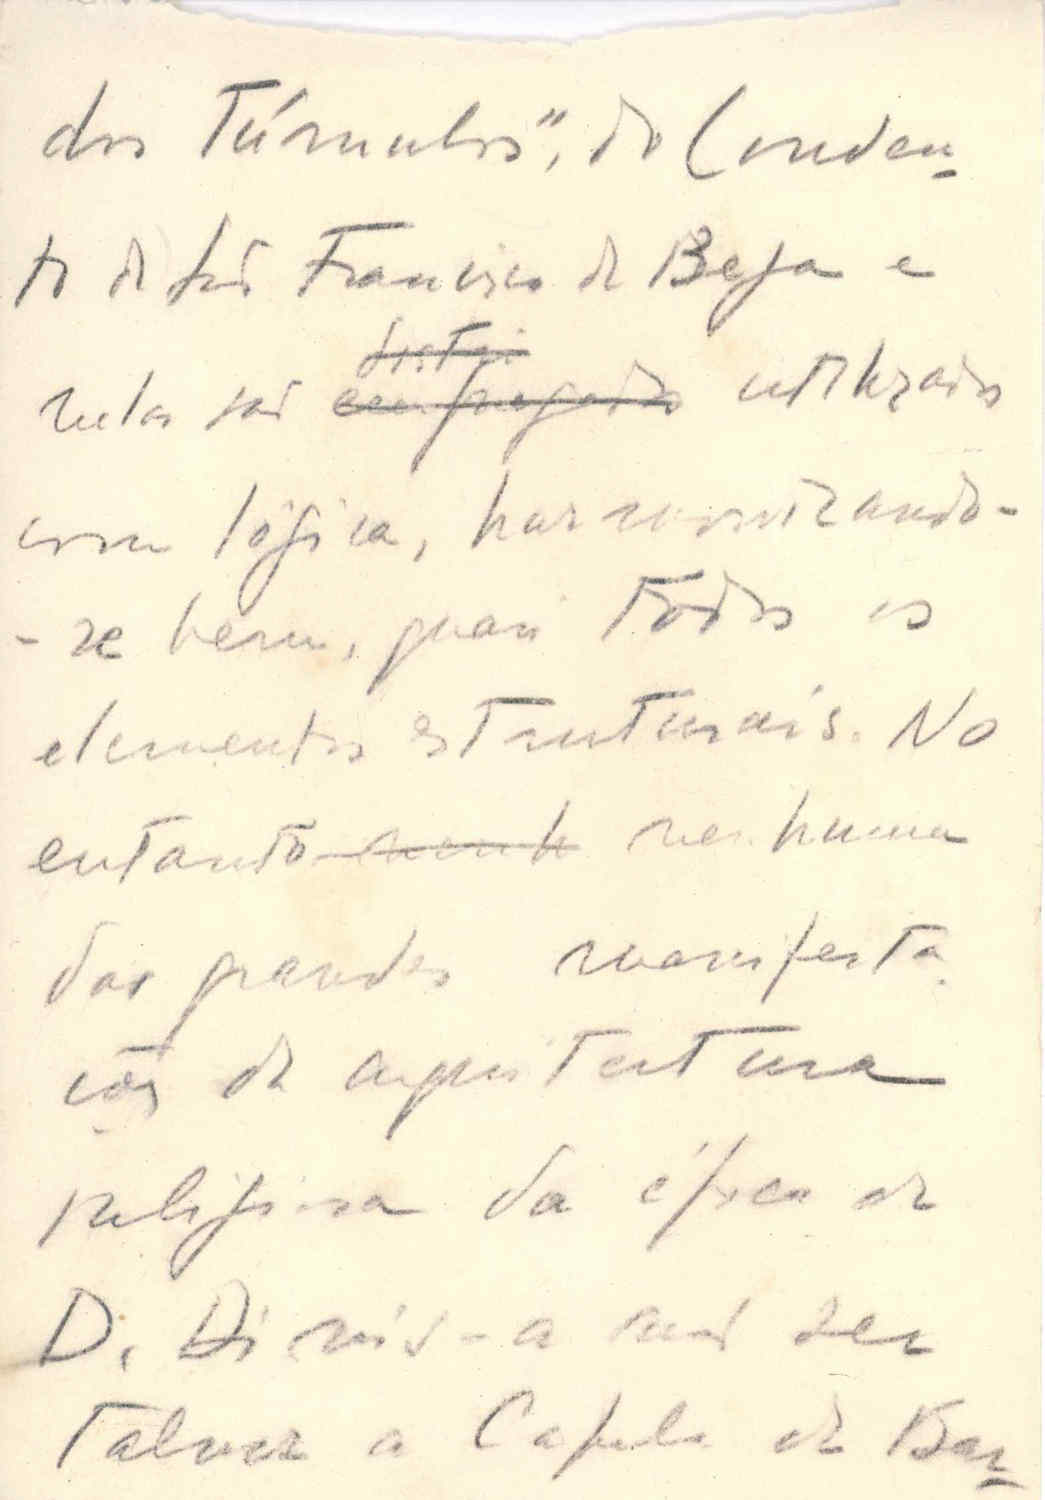 dos Túmulos", do Conven
to de São Francisco de Beja e
nelas são ~~empregados~~ utilizados
com lógica, harmonizando-
-se bem, quasi todos os
elementos estruturais. No
entanto ~~nenh~~ nenhuma
das grandes manifesta
ções da arquitectura
religiosa da época de
D. Dinis - a não ser
talvez a Capela de Bar